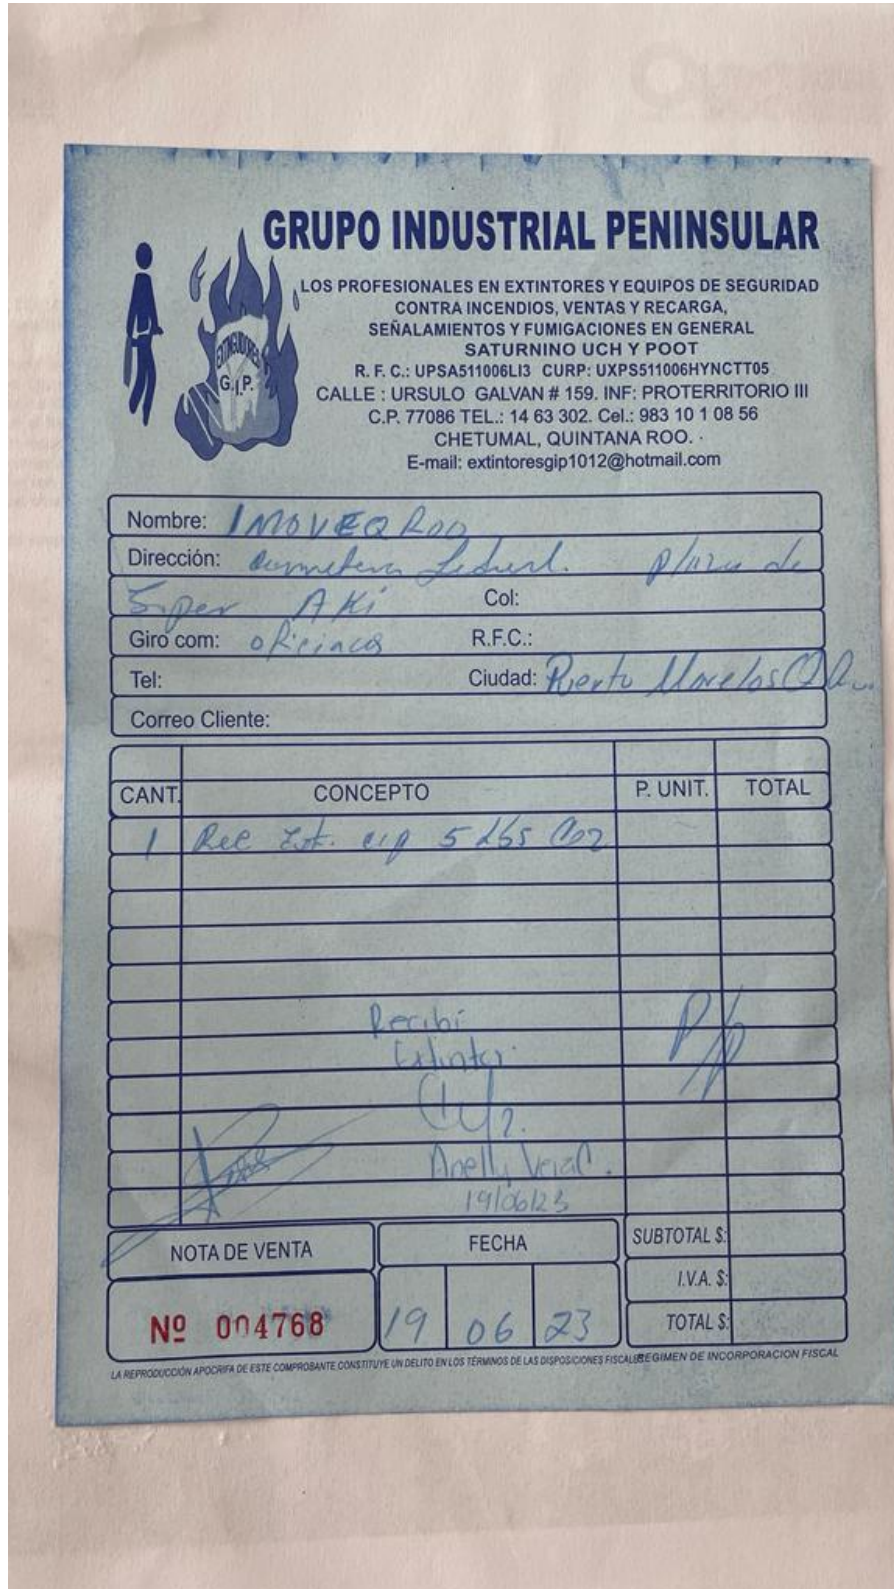 GRUPO INDUSTRIAL PENINSULAR
LOS PROFESIONALES EN EXTINTORES Y EQUIPOS DE SEGURIDAD
CONTRA INCENDIOS, VENTAS Y RECARGA,
SEÑALAMIENTOS Y FUMIGACIONES EN GENERAL
SATURNINO UCH Y POOT
R. F. C.: UPSA511006LI3 CURP: UXPS511006HYNCTT05
CALLE : URSULO GALVAN # 159. INF: PROTERRITORIO III
C.P. 77086 TEL.: 14 63 302. Cel.: 983 10 1 08 56
CHETUMAL, QUINTANA ROO. .
E-mail: extintoresgip1012@hotmail.com
EXTINGUIDORES
G.I.P.
Nombre: IMOVEQROO
Dirección: Carretera Federal. plaza de
Super AKi Col:
Giro com: oficinas R.F.C.:
Tel: Ciudad: Puerto Morelos Q
Correo Cliente:
CANT. CONCEPTO P. UNIT. TOTAL
1 Rec Ext. 5 Lbs CO2
Recibí
Extintor
P/P
Anelly Vera C.
19/06/23
NOTA DE VENTA FECHA SUBTOTAL $:
I.V.A. $:
Nº 004768 19 06 23 TOTAL $:
LA REPRODUCCIÓN APOCRIFA DE ESTE COMPROBANTE CONSTITUYE UN DELITO EN LOS TÉRMINOS DE LAS DISPOSICIONES FISCALES REGIMEN DE INCORPORACION FISCAL